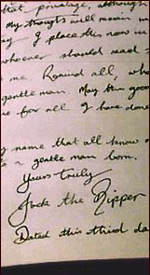 that privilege, although
My thoughts will remain in
I place this now in
whoever should read
me. Round all, who
gentle man. May the good
me for all I have done
y name that all know of
s a gentle man born.
Yours truly
Jack the Ripper
Dated this third da